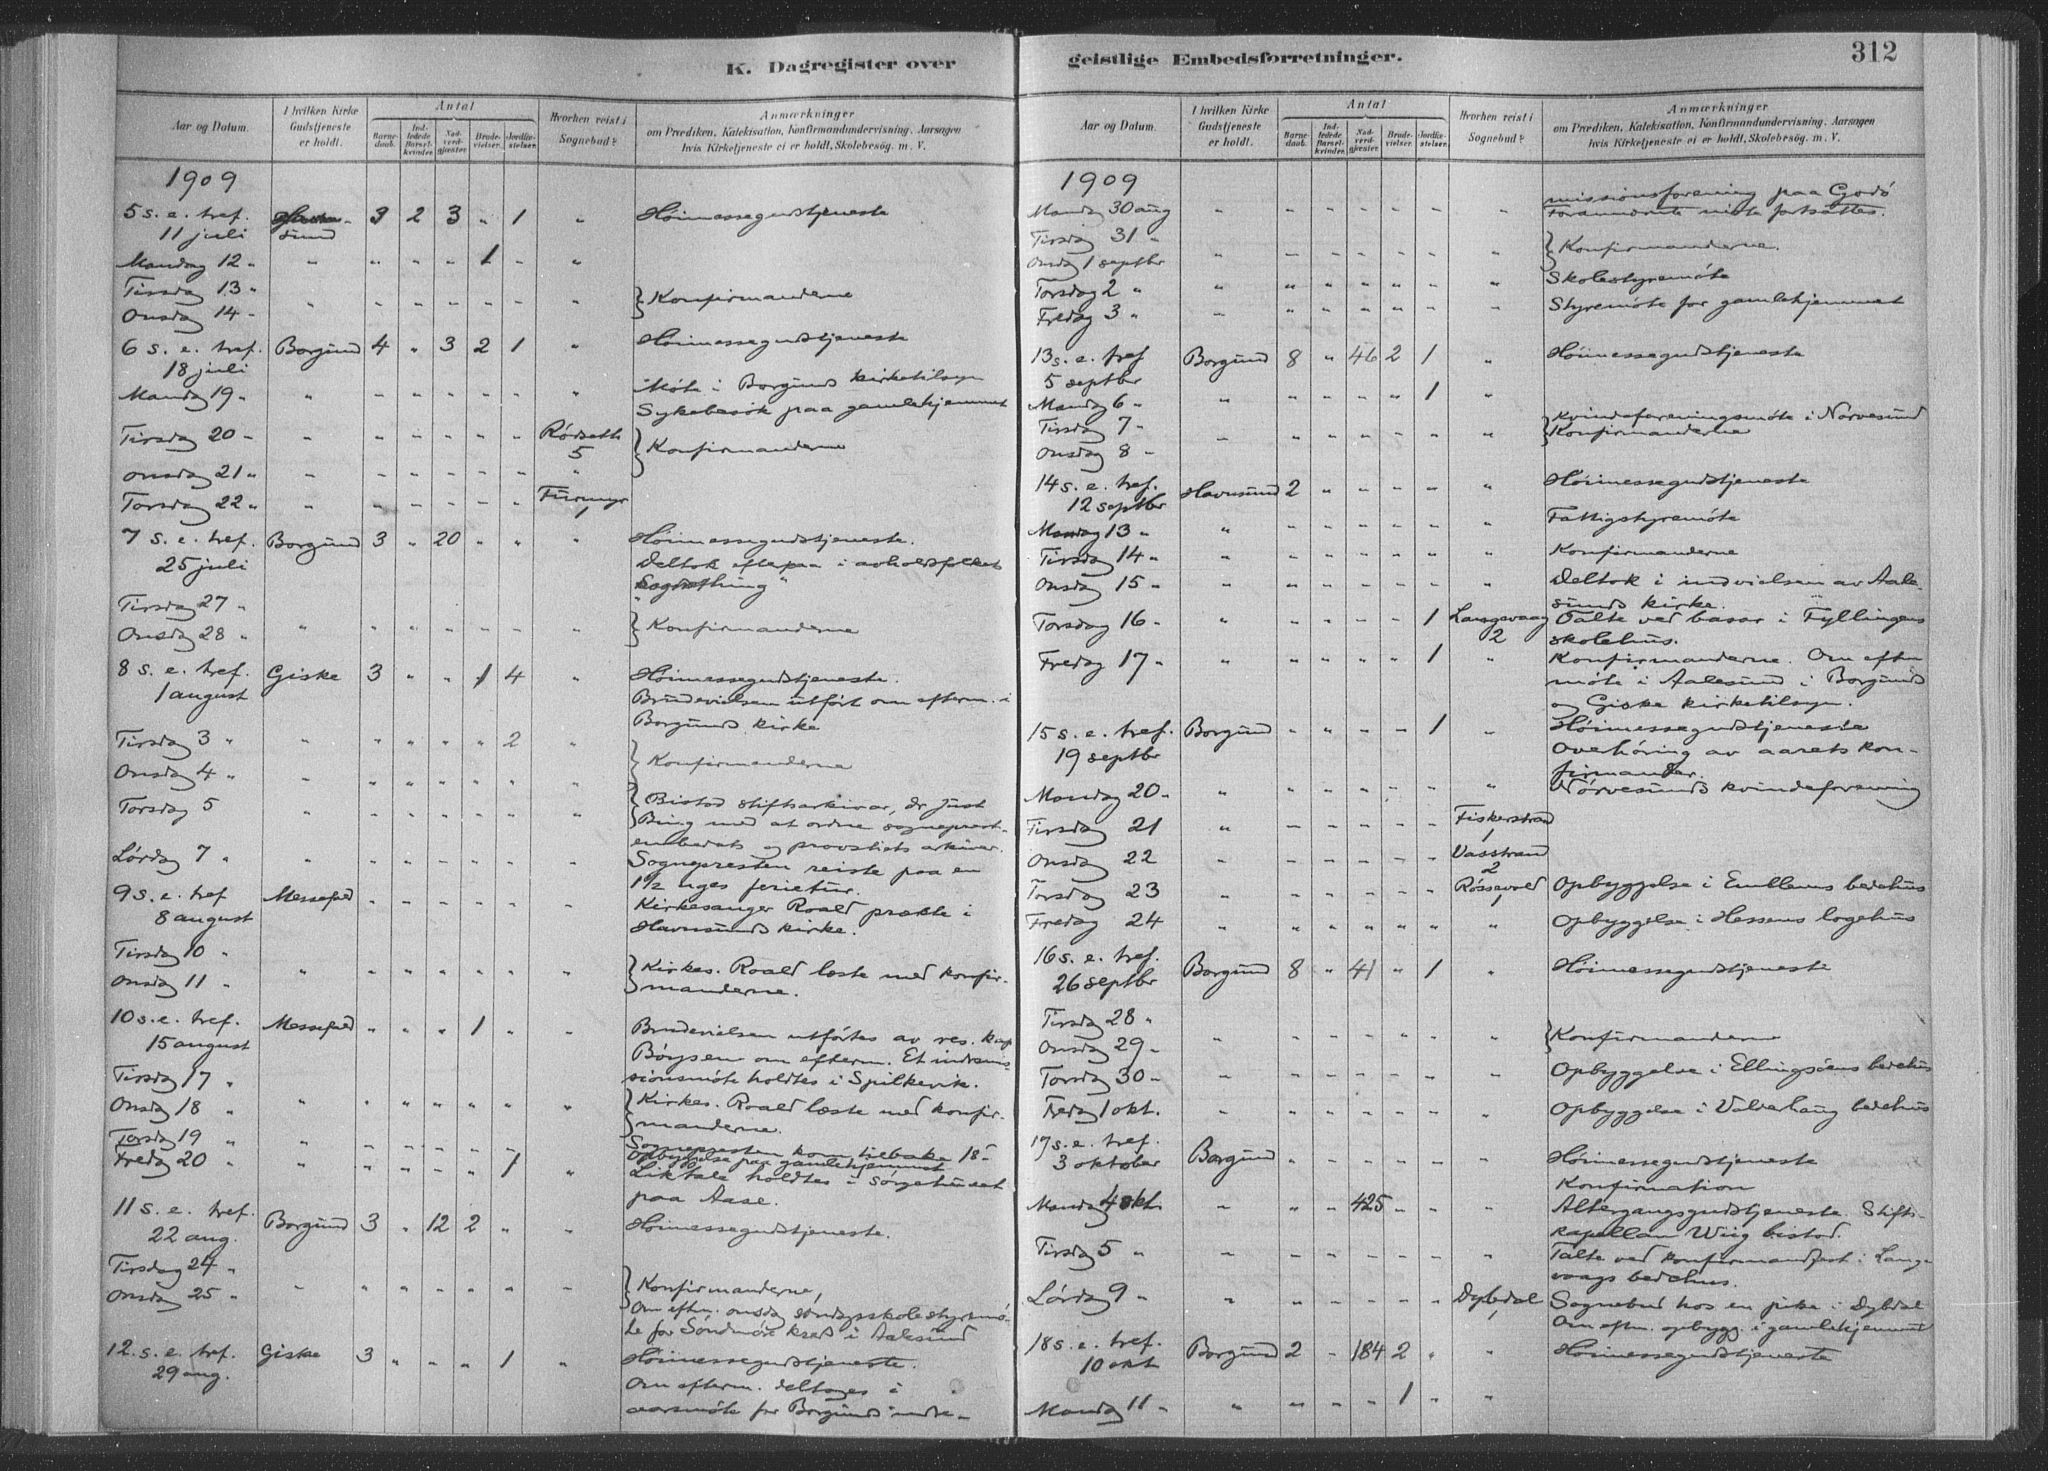 K. Dagregister over
Aar og Datum.
I hvilken Kirke Gudstjeneste er holdt.
Antal
Barnedaab.
Indledede Barselkvinder.
Nadverdgjester.
Brudevielser.
Jordfæstelser.
Hvorhen reist i Sognebud?
Anmærkninger
om Prædiken, Katekisation, Konfirmandundervisning, Aarsagen
hvis Kirketjeneste ei er holdt, Skolebesøg. m. V.
1909
5 s. e. tref. 3 2 3 „ 1 „ Høimessegudstjeneste
11 juli sund
Mandag 12 „ „ „ „ „ 1 „ „
Tirsdag 13 „
Onsdag 14 „ } Konfirmanderne
6 s. e. tref. Borgund 4 „ 3 2 1 „ Høimessegudstjeneste
18 juli
Mandag 19 „ Møte i Borgunds kirketilsyn
Sykebesøk paa gamlehjemmet
Tirsdag 20 „ Rødsæth 5 } Konfirmanderne
Onsdag 21 „
Torsdag 22 „ Furmyr 1
7 s. e. tref. Borgund 3 „ 20 „ „ „ Høimessegudstjeneste.
25 juli Deltok efterpaa i avholdsfolkets
„Sogdething“
Tirsdag 27 „
Onsdag 28 „ } Konfirmanderne
8 s. e. tref. Giske 3 „ „ 1 4 „ Høimessegudstjeneste.
1 august Brudevielsen utført om efterm. i
Borgunds kirke
Tirsdag 3 „ 2 „
Onsdag 4 „ } Konfirmanderne
Torsdag 5 } Bistod stiftsarkivar, dr Just
Bing med at ordne sogneprest-
embedets og provstiets arkiver.
Lørdag 7 „ Sognepresten reiste paa en
1½ uges ferietur.
9 s. e. tref Messefald Kirkesanger Roald prækte i
8 august Havnsunds kirke.
Tirsdag 10 „
Onsdag 11 „ } Kirkes. Roald læste med konfir-
manderne.
10 s. e. tref. Messefald „ „ „ 1 „ „ Brudevielsen utførtes av res. kap
15 august Bøysen om efterm. Et indremis-
sionsmøte holdtes i Spilkevik.
Tirsdag 17 „
Onsdag 18 „ } Kirkes. Roald læste med konfir-
manderne.
Torsdag 19 „ Sognepresten kom tilbake 18-
Fredag 20 „ 1 „ Opbyggelse paa gamlehjemmet
Liktale holdtes i sørgehuset
paa Aase.
11 s. e. tref. Borgund 3 „ 12 2 „ „ Høimessegudstjeneste.
22 aug.
Tirsdag 24 „
Onsdag 25 „ } Konfirmanderne,
Om eftm. onsdag søndagsskolestyrsmø-
te for Søndmør kreds i Aalesund
12. s. e. tref. Giske 3 „ „ „ 1 „ Høimessegudstjeneste.
29 aug. Om efterm. deltoges i
aarsmøte for Borgunds indre-
geistlige Embedsforretninger. 312
Aar og Datum.
I hvilken Kirke Gudstjeneste er holdt.
Antal
Barnedaab.
Indledede Barselkvinder.
Nadverdgjester.
Brudevielser.
Jordfæstelser.
Hvorhen reist i Sognebud?
Anmærkninger
om Prædiken, Katekisation, Konfirmandundervisning, Aarsagen
hvis Kirketjeneste ei er holdt, Skolebesøg. m. V.
1909
missionsforening paa Godø
Mandag 30 aug møte fortsattes.
Tirsdag 31 „
Onsdag 1 septbr } Konfirmanderne.
Torsdag 2 „ Skolestyremøte
Fredag 3 „ Styremøte for gamlehjemmet
13 s. e. tref Borgund 8 „ 46 2 1 „ Høimessegudstjeneste
5 septbr
Mandag 6 „ 1 „
Tirsdag 7 „ } Kvindeforeningsmøte i Nørvesund
Onsdag 8 „ Konfirmanderne
14 s. e. tref. Havnsund 2 „ „ „ „ „ Høimessegudstjeneste
12 septbr
Mandag 13 „ Fattigstyremøte
Tirsdag 14 „ Konfirmanderne
Onsdag 15 „ Deltok i indvielsen av Aale-
sunds kirke.
Torsdag 16 „ 1 Langevaag 2 Talte ved basar i Fyllingens
skolehus.
Fredag 17 „ 1 „ Konfirmanderne. Om eftm
møte i Aalesund i Borgunds
og Giske kirketilsyn.
15 s. e. tref. Borgund „ „ „ „ 1 „ Høimessegudstjeneste
19 septbr Overhøring av aarets kon-
firmander.
Mandag 20 „ Nørvesunds kvindeforening
Tirsdag 21 Fiskerstrand 1
Onsdag 22 Vasstrand 2
Torsdag 23 Røssevold 1 Opbyggelse i Emblems bedehus
Fredag 24 Opbyggelse i Hessens logehus
16 s. e. tref. Borgund 8 „ 41 „ 1 „ Høimessegudstjeneste
26 septbr
Tirsdag 28 „
Onsdag 29 „ } Konfirmanderne
Torsdag 30 „ Opbyggelse i Ellingsøens bedehus
Fredag 1 okt. Opbyggelse i Valderhaug bedehus
17 s. e. tref. Borgund Høimessegudstjeneste
3 oktober Konfirmation
Mandag 4 okt. 425 Altergangsgudstjeneste. Stifts-
kapellan Wiig bistod.
Tirsdag 5 „ Talte ved konfirmandfest i Lange-
vaags bedehus.
Lørdag 9 „ Dybdal 1 Sognebud hos en pike i Dybdal
Om eftm. opbygg. i gamlehjemmet
18 s. e. tref. Borgund 2 „ 184 2 „ „ Høimessegudstjeneste
10 okt
Mandag 11 „ 1 „ „